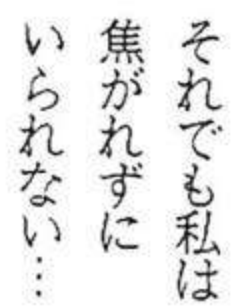 それでも私は
焦がれずに
いられない…